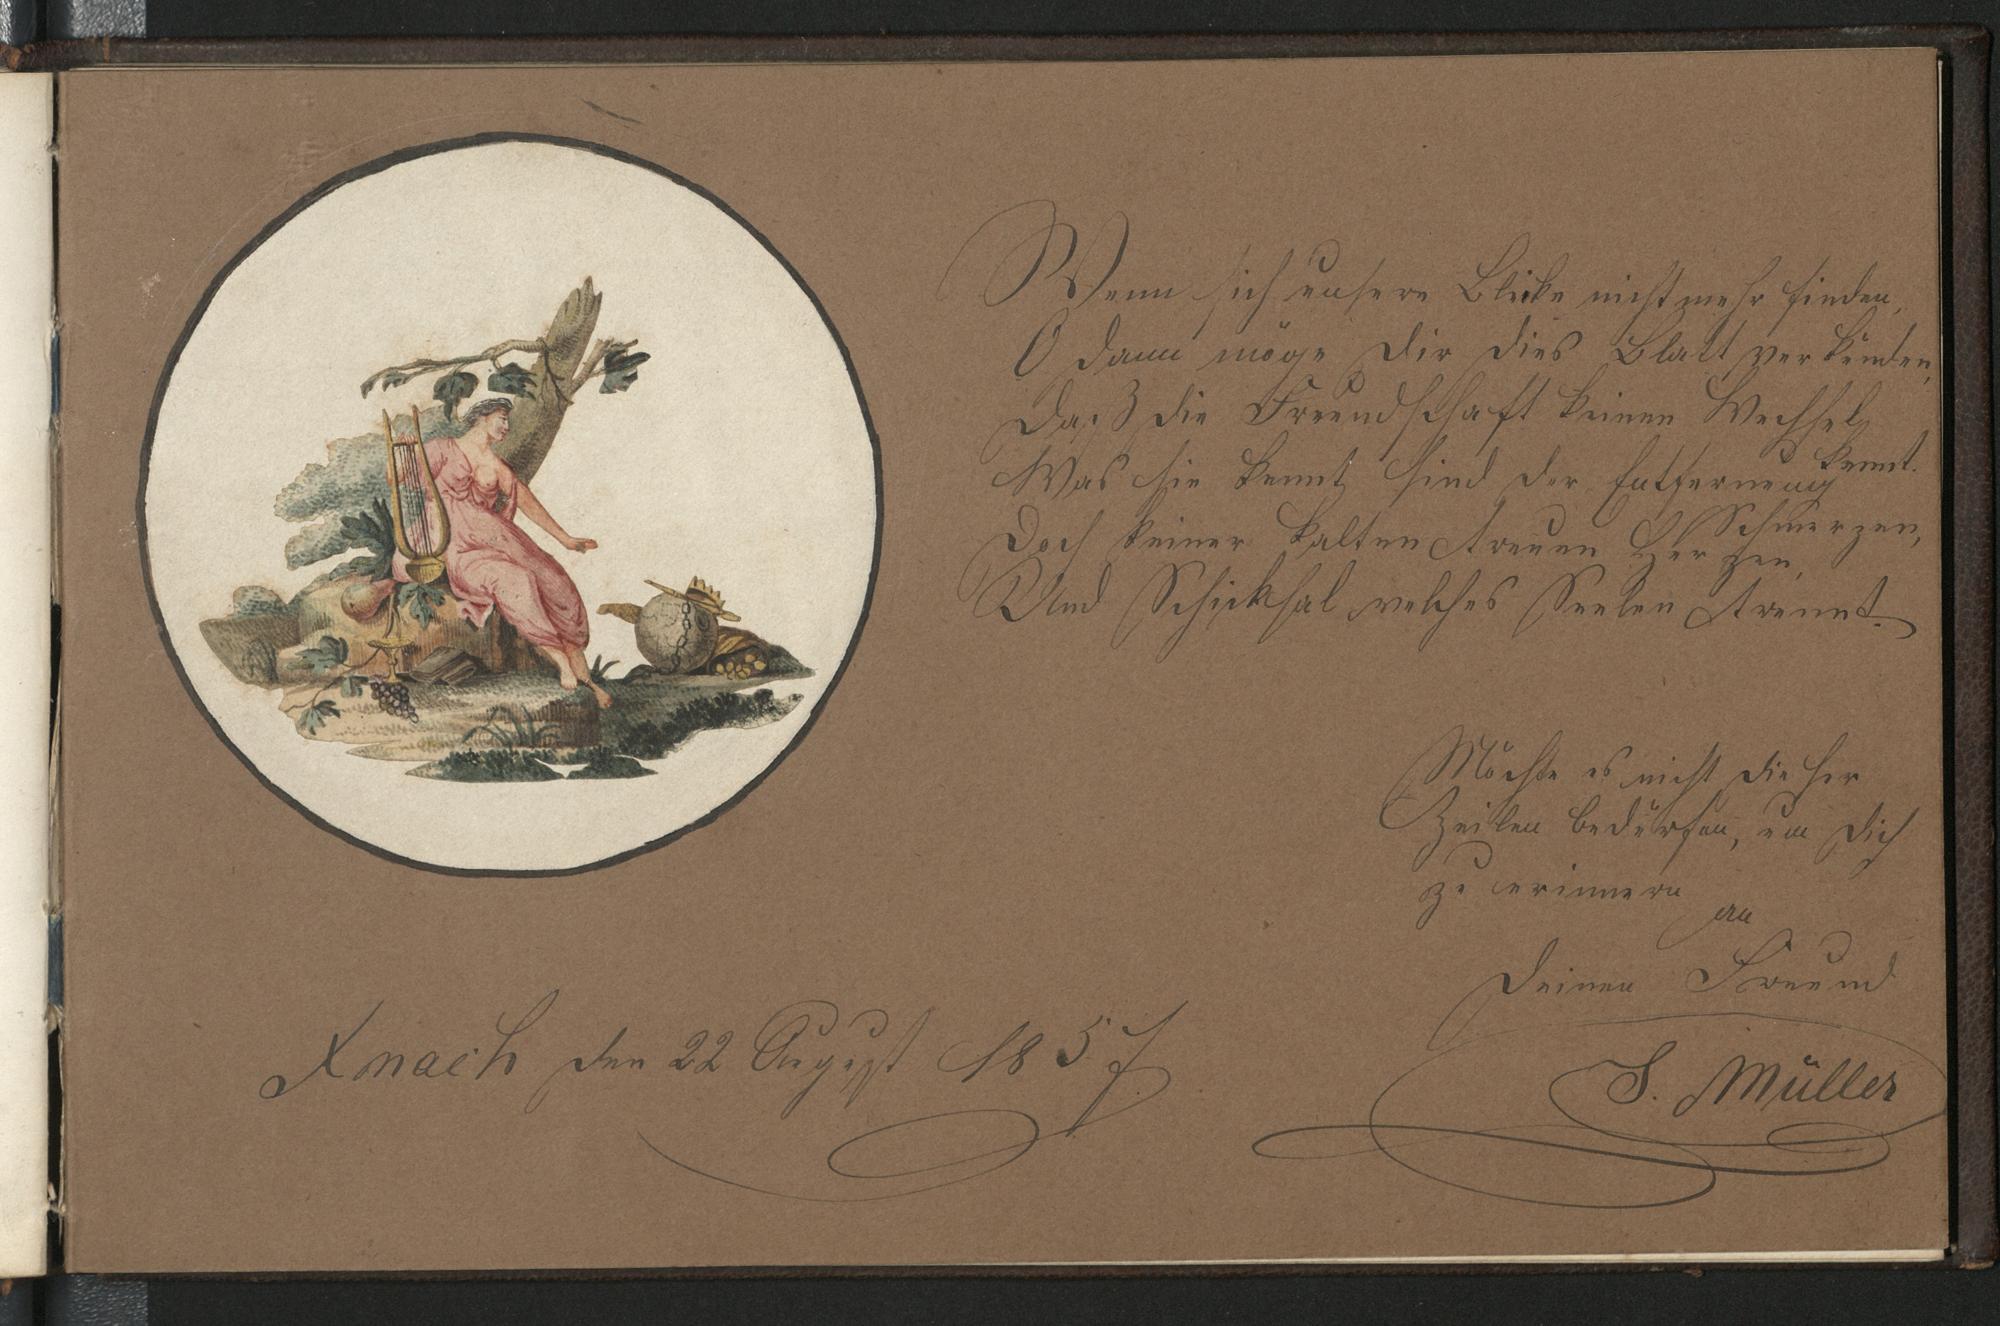 Wenn sich unsere Blicke nicht mehr finden,
O dann möge Dir dies Blatt verkünden,
Daß die Freundschaft keinen Wechsel
kennt.
Was sie kennt, sind der Entfernung
Schmerzen,
Doch keiner kalten treuen Herzen,
Und Schicksal welches Seelen trennt.
Möchte es nicht dieser
Zeilen bedürfen, um Dich
zu erinnern
an
Deinen Freund
S. Müller
Xnach den 22 August 1857